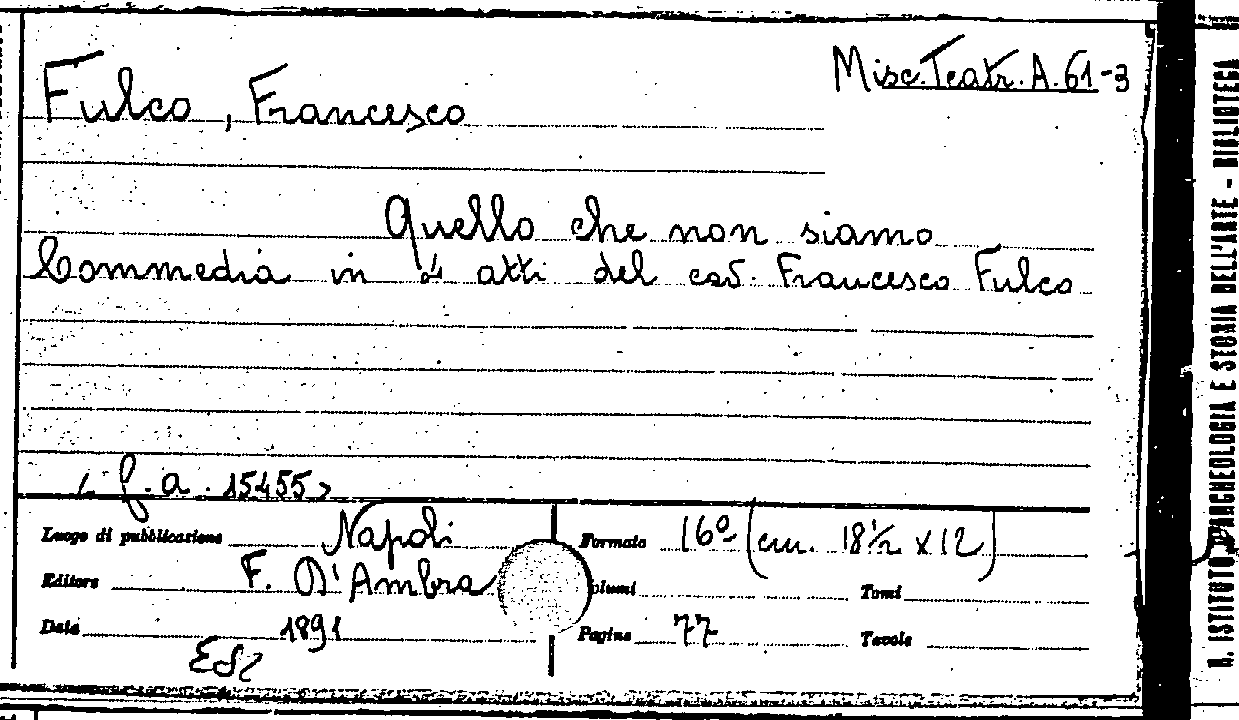 Misc. Teatr. A. 61-3
Fulco, Francesco
Quello che non siamo
Commedia in 4 atti del cav. Francesco Fulco
f. a. 15455
Luogo di pubblicazione Napoli
Formato 16º (cm. 18½ x 12)
Editore F. D'Ambra
olumi
Tomi
Data 1891
Pagine 77
Tavole
R. ISTITUTO D'ARCHEOLOGIA E STORIA DELL'ARTE - BIBLIOTECA